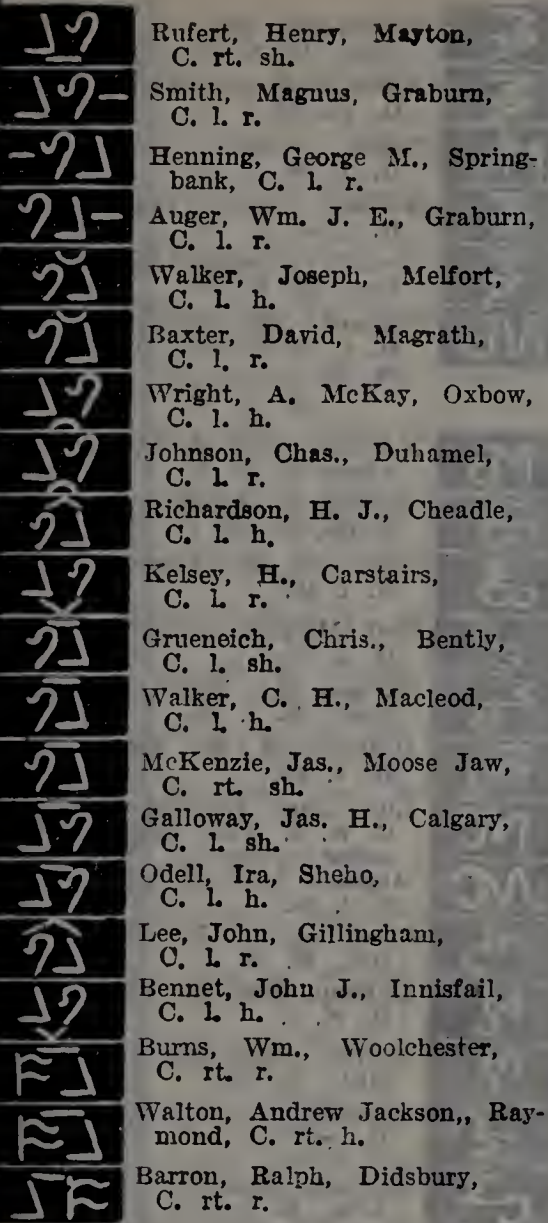 Rufert, Henry, Mayton,
C. rt. sh.
Smith, Magnus, Graburn,
C. l. r.
Henning, George M., Spring-
bank, C. l. r.
Auger, Wm. J. E., Graburn,
C. l. r.
Walker, Joseph, Melfort,
C. l. h.
Baxter, David, Magrath,
C. l. r.
Wright, A. McKay, Oxbow,
C. l. h.
Johnson, Chas., Duhamel,
C. l. r.
Richardson, H. J., Cheadle,
C. l. h.
Kelsey, H., Carstairs,
C. l. r.
Grueneich, Chris., Bently,
C. l. sh.
Walker, C. H., Macleod,
C. l. h.
McKenzie, Jas., Moose Jaw,
C. rt. sh.
Galloway, Jas. H., Calgary,
C. l. sh.
Odell, Ira, Sheho,
C. l. h.
Lee, John, Gillingham,
C. l. r.
Bennet, John J., Innisfail,
C. l. h.
Burns, Wm., Woolchester,
C. rt. r.
Walton, Andrew Jackson,, Ray-
mond, C. rt. h.
Barron, Ralph, Didsbury,
C. rt. r.